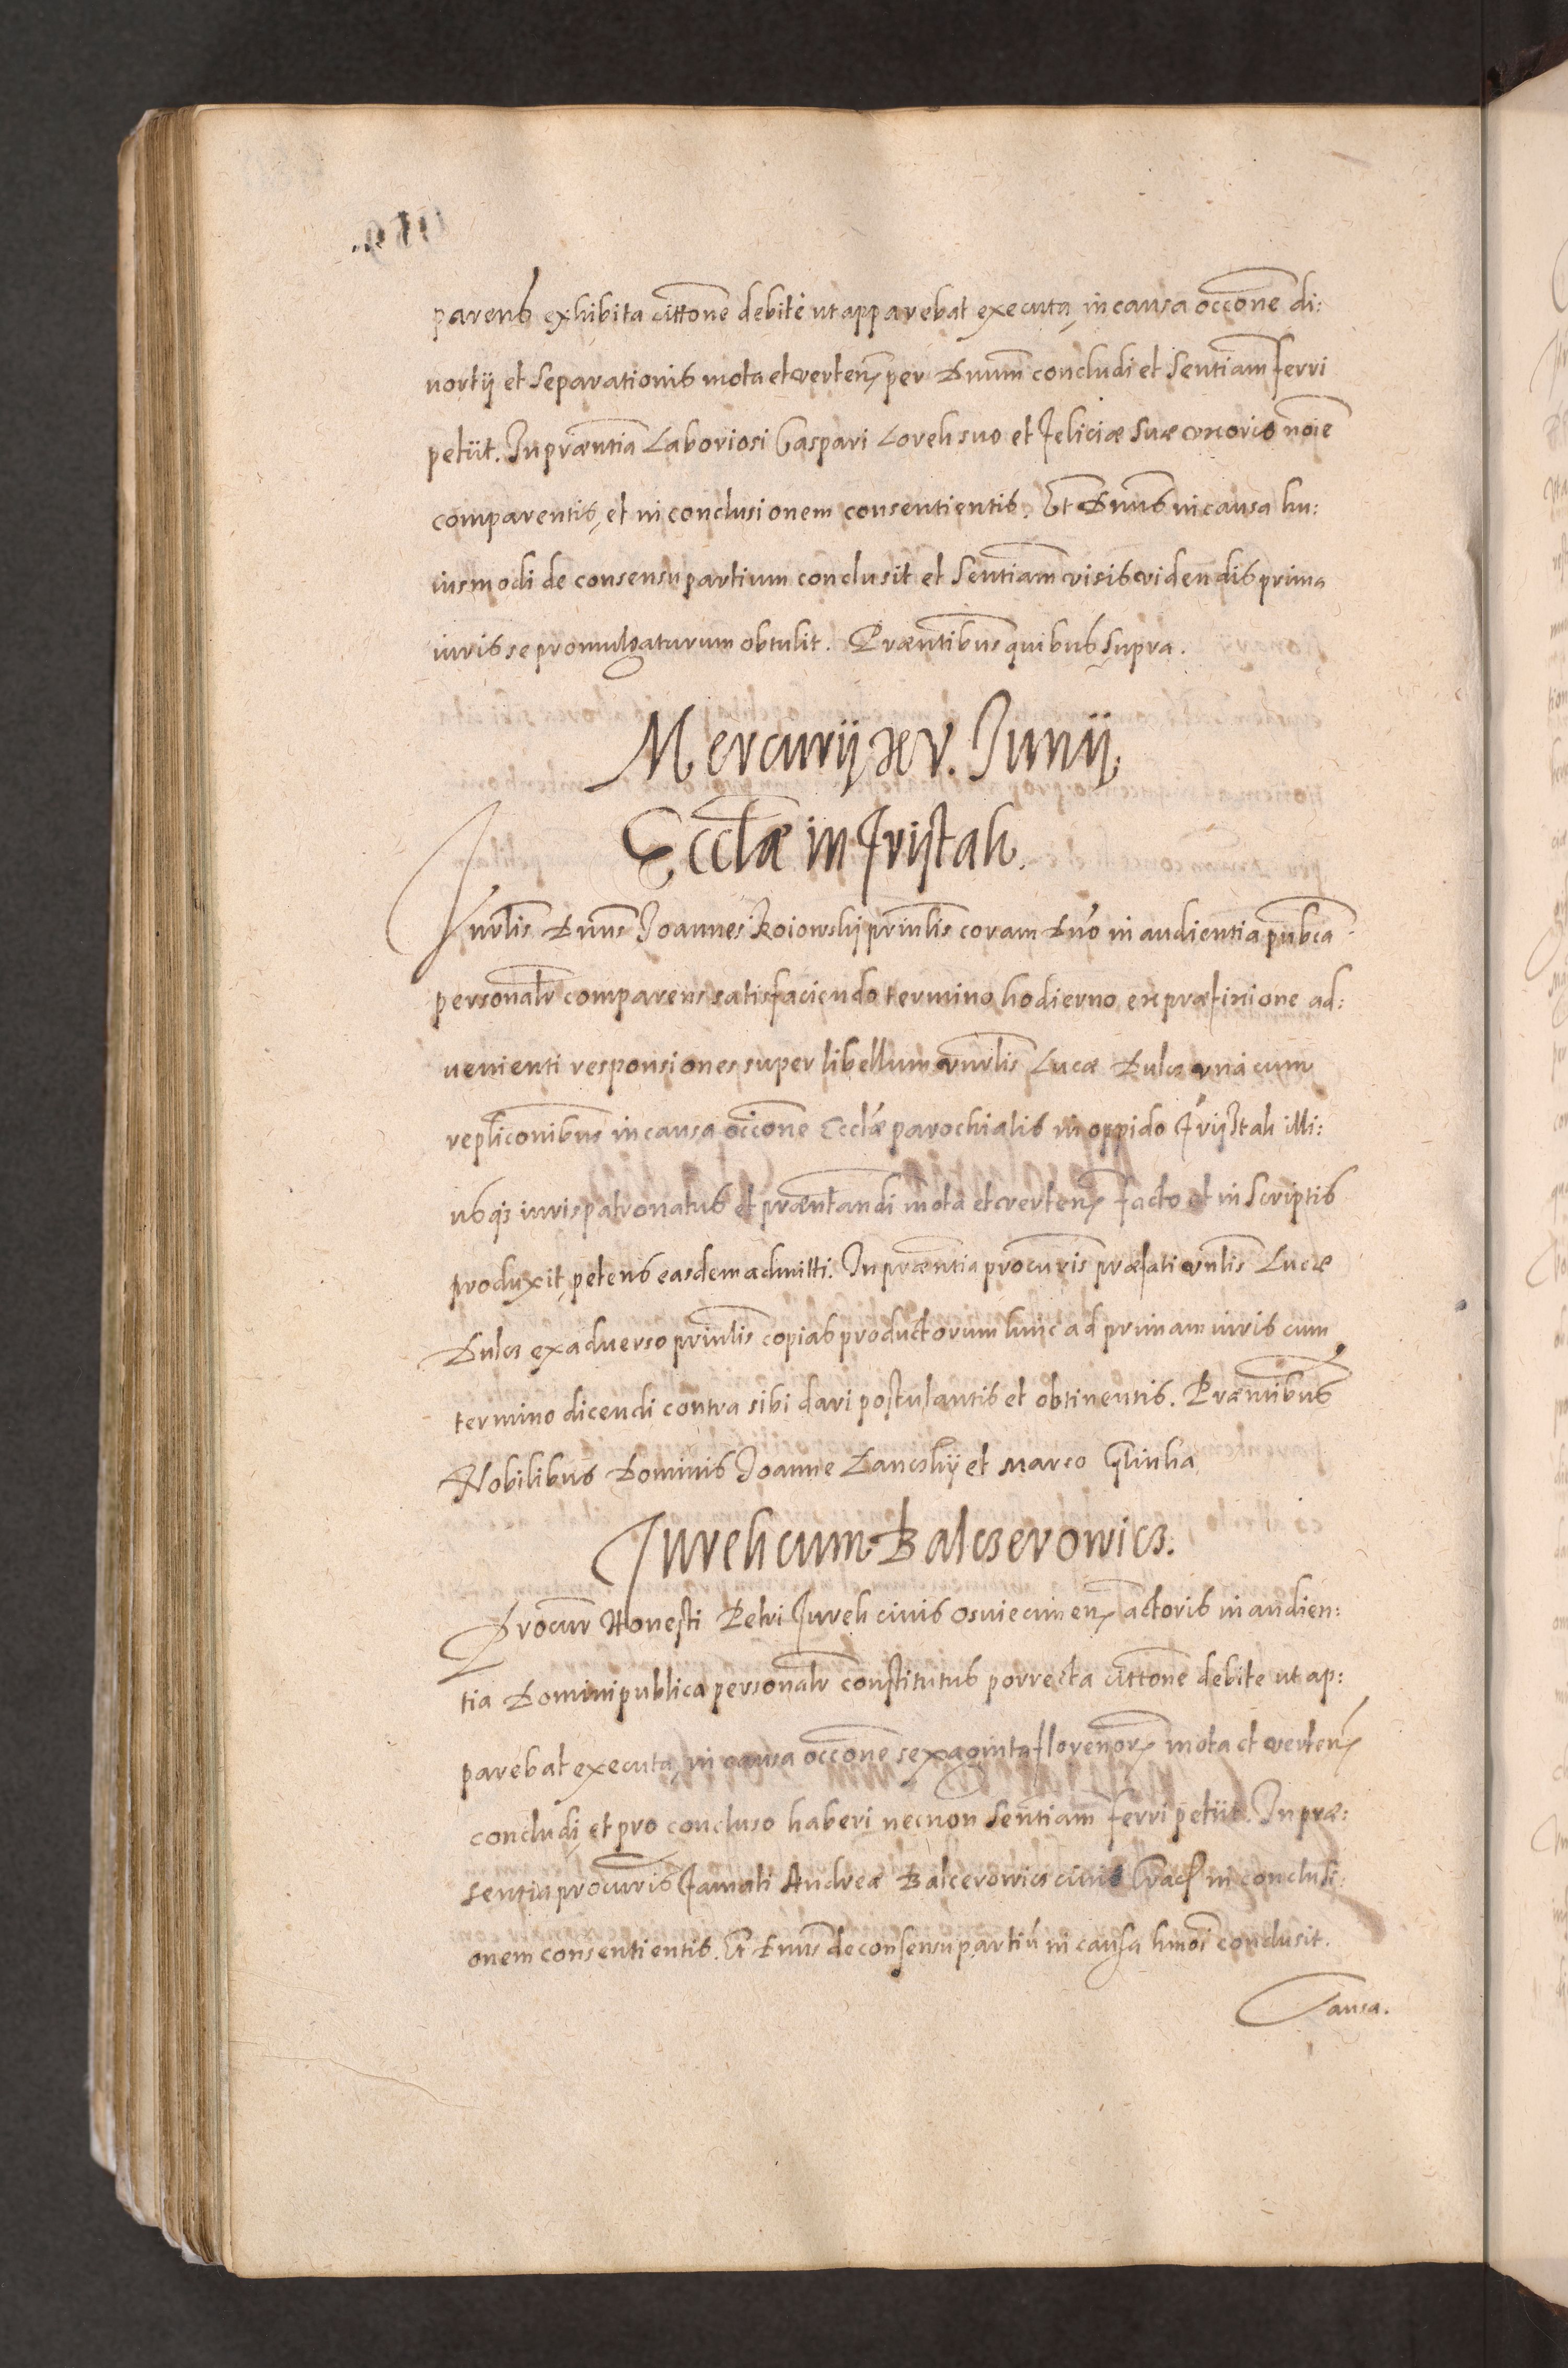 parens exhibita cittone debite ut apparebat executa, in causa occone di:
uortij et separationis mota et verten per Dnum concludi et sentiam ferri
petiit. In præntia Laboriosi Caspari Lorek suo et Feliciæ suæ uxoris noie
comparentis, et in conclusionem consentientis. Et Dnus in causa hu:
iusmodi de consensu partium conclusit et sentiam visis videndis prima
iuris se promulgaturum obtulit. Præntibus quibus supra.
Mercurij xv. Junij.
Eccłæ in Frijstak.
Vnrlis Dnus Joannes Koiowskij prinlis coram Dno in audientia pubca
personalr comparens satisfaciendo termino hodierno ex præfixione ad:
uenienti responsiones super libellum vnrlis Lucæ Dulcz vna cum
repliconibus in causa occione Eccłæ parochialis in oppido Frijstak illi:
usqs iurispatronatus et præntandi mota et verten facto et in scriptis
produxit, petens easdem admitti. In præntia procuris præfati vnlis Lucæ
Dulcz ex aduerso prinlis copias productorum hinc ad primam iuris cum
termino dicendi contra sibi dari postulantis et obtinentis. Præntibus
Nobilibus Dominis Joanne Lanczkij et Marco Glinka
Jurek cum Balczerowicz.
Procur Honesti Petri Jurek ciuis Osuiecimen actoris in audien:
tia Domini publica personalr constitutus porrecta cittone debite ut ap:
parebat executa, in causa occone sexaginta florenor mota et verten
concludi, et pro concluso haberi necnon sentiam ferri petiit. In præ:
sentia procuris Famati Andreæ Balcerowicz ciuis Crac in conclusi:
onem consentientis. Et Dnus de consensu partiu in causa hmoi conclusit.
Causa.